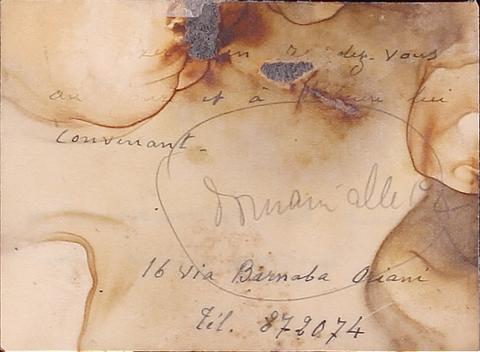 dez-vous
au et à lui
convenant.
domani alle
16 Via Barnaba Oriani
Tél. 872074